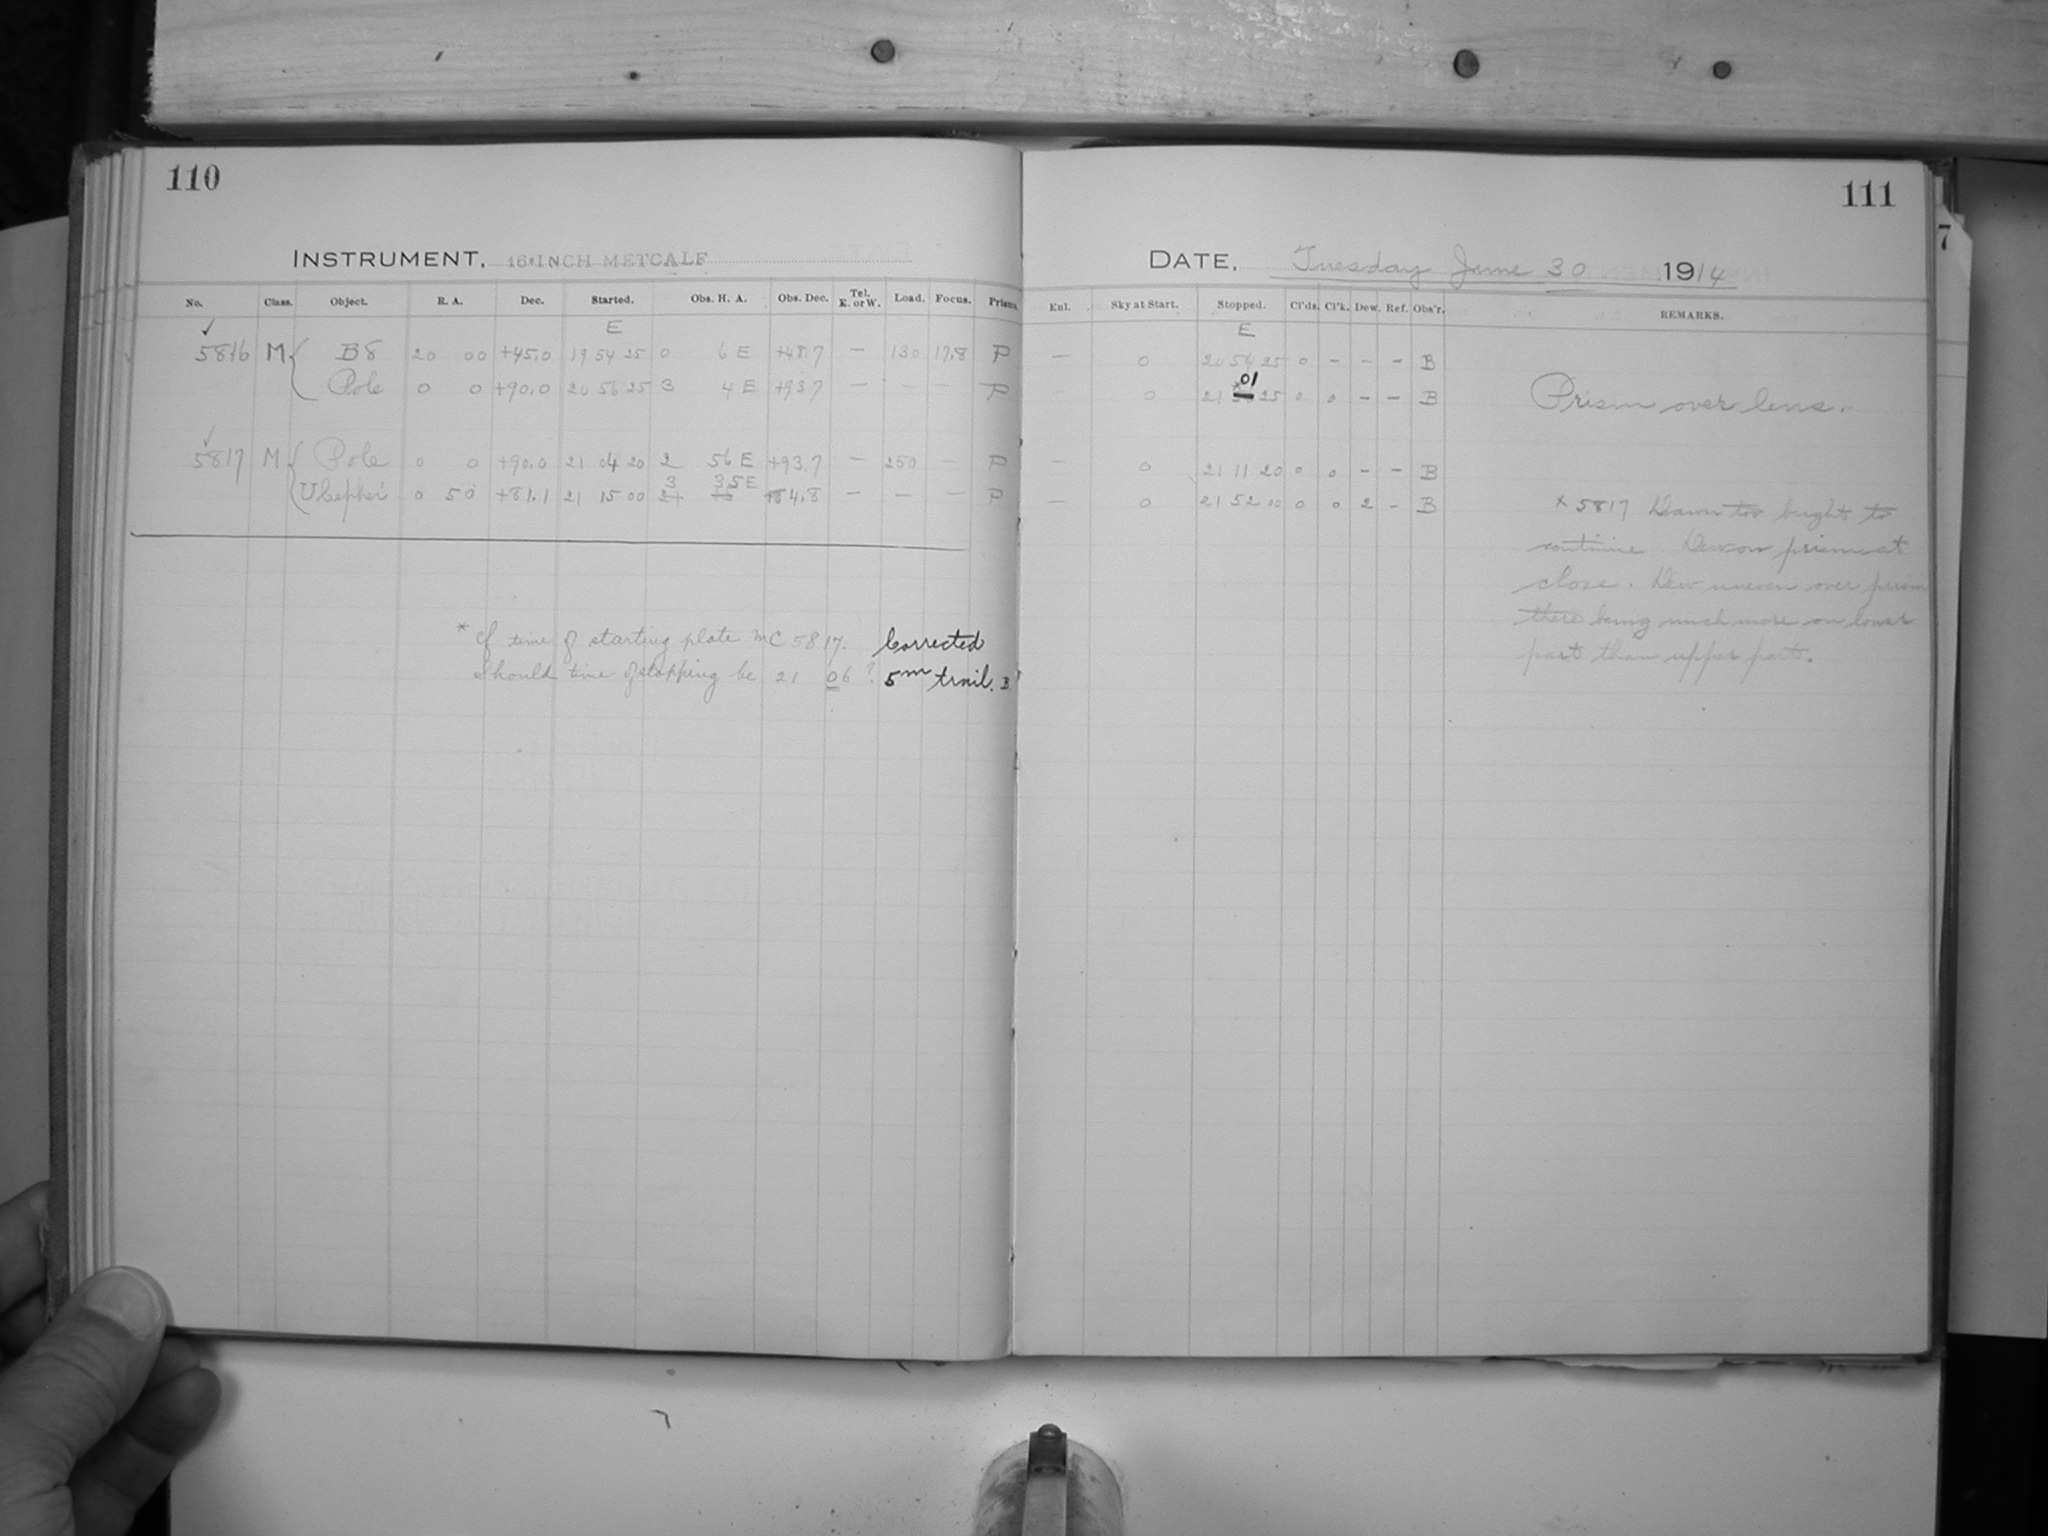 110
INSTRUMENT. 16-INCH METCALF
No. Class. Object. R. A. Dec. Started. Obs. H. A. Obs. Dec. Tel. E. or W. Load. Focus. Prism.
E
✓
5816 M { B8 20 00 +45.0 19 54 25 0 6 E +48.7 — 130 17.8 P
Pole 0 0 +90.0 20 56 25 3 4 E +93.7 — — — P
✓
5817 M { Pole 0 0 +90.0 21 04 20 2 56 E +93.7 — 250 — P
3 35 E
U Cephei 0 50 +81.1 21 15 00 +84.8 — — — P
* cf time of starting plate MC 5817. Corrected
Should time of stopping be 21 06? 5m trail. B.
111
DATE. Tuesday June 30 1914
Enl. Sky at Start. Stopped. Cl'ds. Cl'k. Dew. Ref. Obs'r. REMARKS.
E
— 0 20 54 25 0 – – – B
* 01
— 0 21 25 0 0 – – B Prism over lens.
— 0 21 11 20 0 0 – – B
— 0 21 52 00 0 0 2 – B x 5817 Dawn too bright to
continue Dew on prism at
close. Dew uneven over prism
there being much more on lower
part than upper part.
7